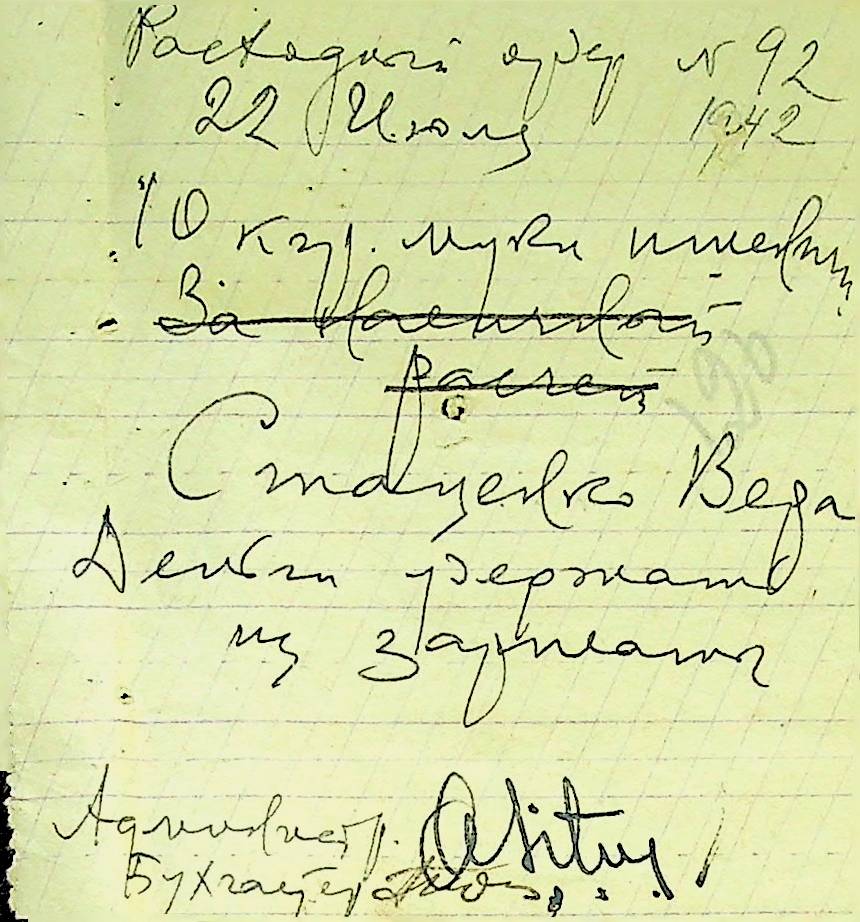 Расходный ордер N 92
22 Июля 1942
10 кгр. муки пшеничн.
За наличный
расчет
Стаценко Вера
Деньги удержать
из зарплаты
Администр.
Бухгалтер